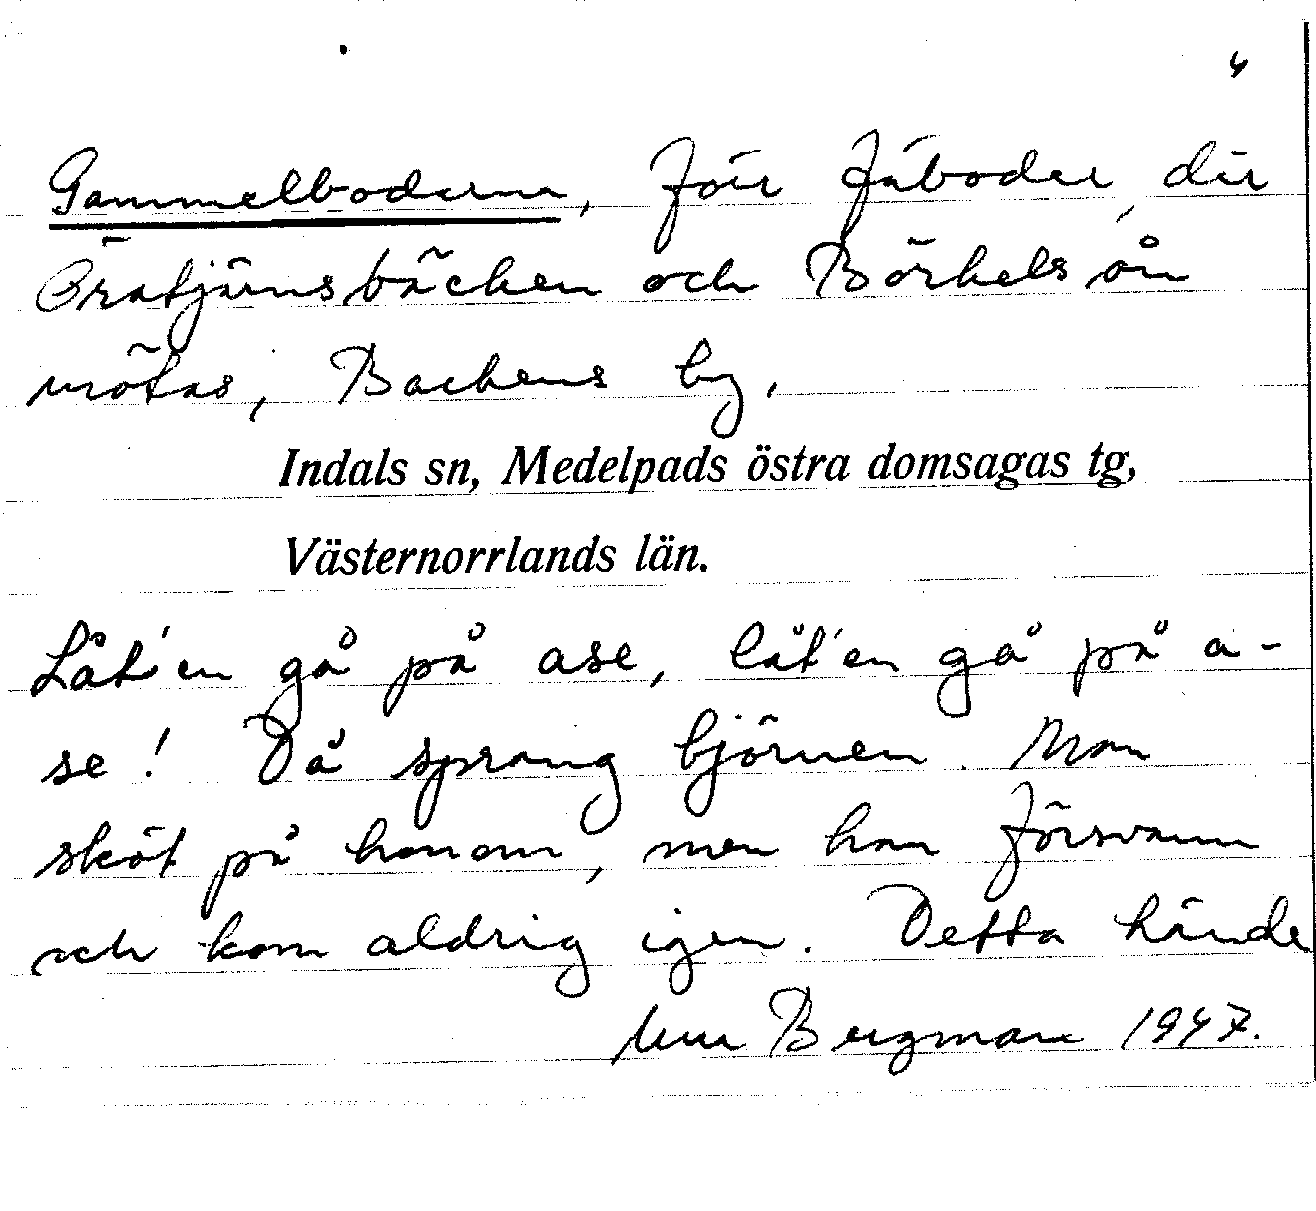 4
Gammelboderna, förr fäboder, där
Öratjärnsbäcken och Börhelsån
mötas, Backens by,
Indals sn, Medelpads östra domsagas tg,
Västernorrlands län.
Låt'en gå på ase, låt'en gå på a-
se! Då sprang björnen. Man
sköt på honom, men han försvann
och kom aldrig igen. Detta hände
Bergman 1947.